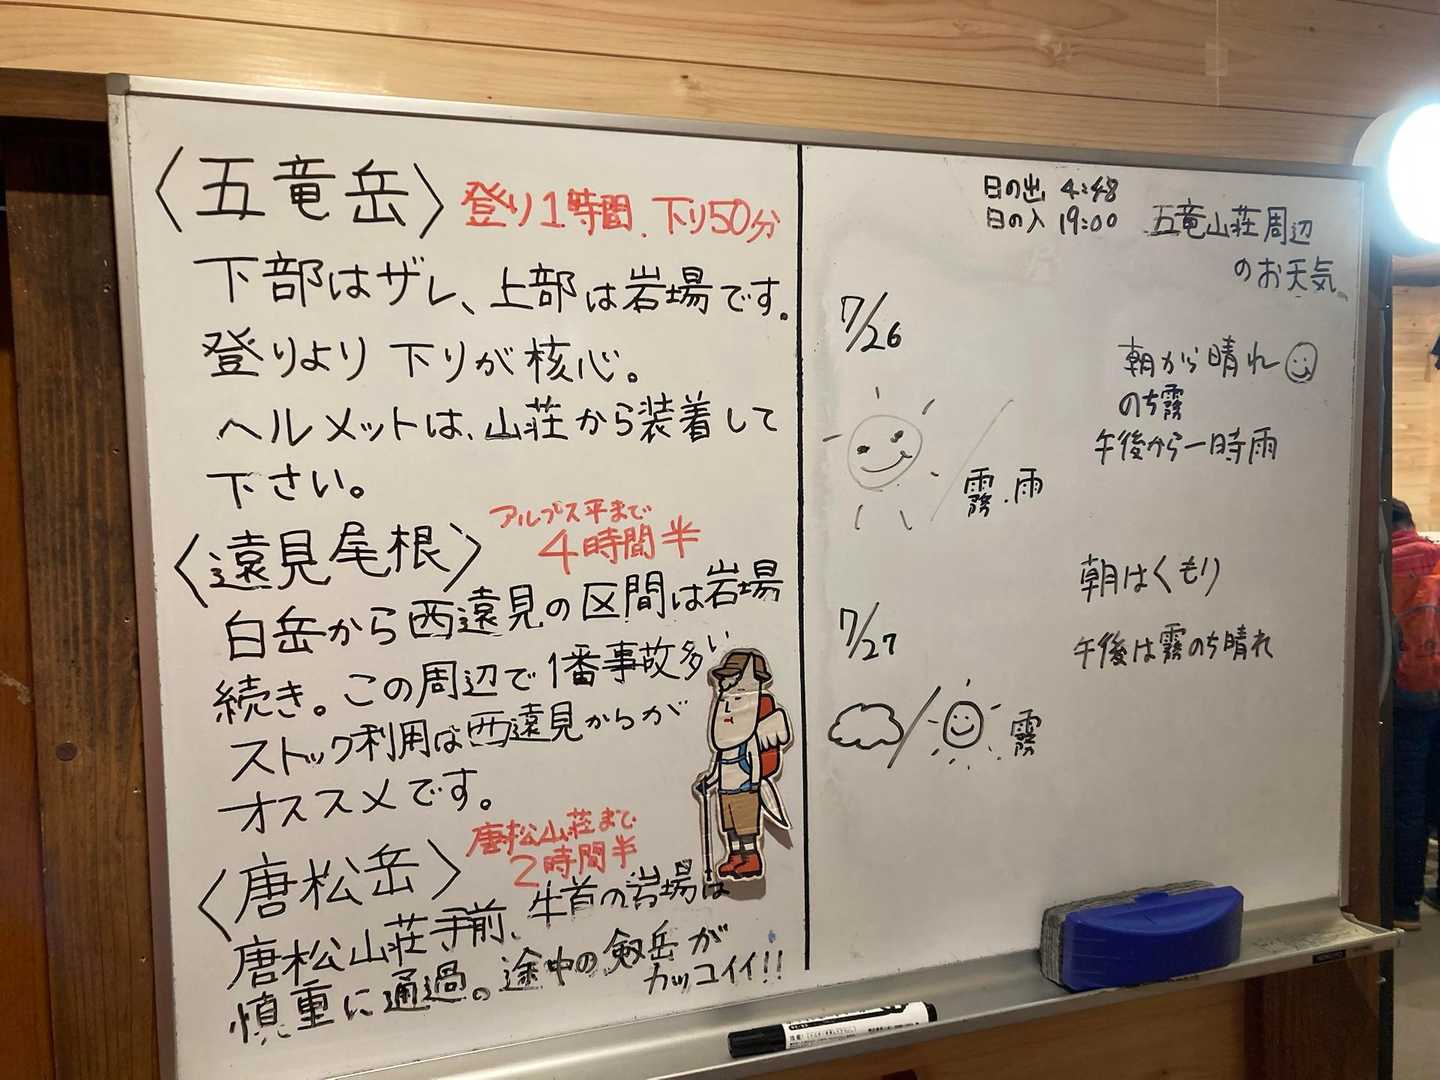 〈五竜岳〉 登り1時間、下り50分
下部はザレ、上部は岩場です。
登りより下りが核心。
ヘルメットは、山荘から装着して
下さい。
〈遠見尾根〉 アルプス平まで
4時間半
白岳から西遠見の区間は岩場
続き。この周辺で1番事故多い
ストック利用は西遠見からが
オススメです。
〈唐松岳〉 唐松山荘まで
2時間半
唐松山荘手前、牛首の岩場は
慎重に通過。途中の剱岳が
カッコイイ!!
日の出 4:48
日の入 19:00
五竜山荘周辺
のお天気
7/26
朝から晴れ
のち霧
午後から一時雨
霧.雨
7/27
朝はくもり
午後は霧のち晴れ
霧